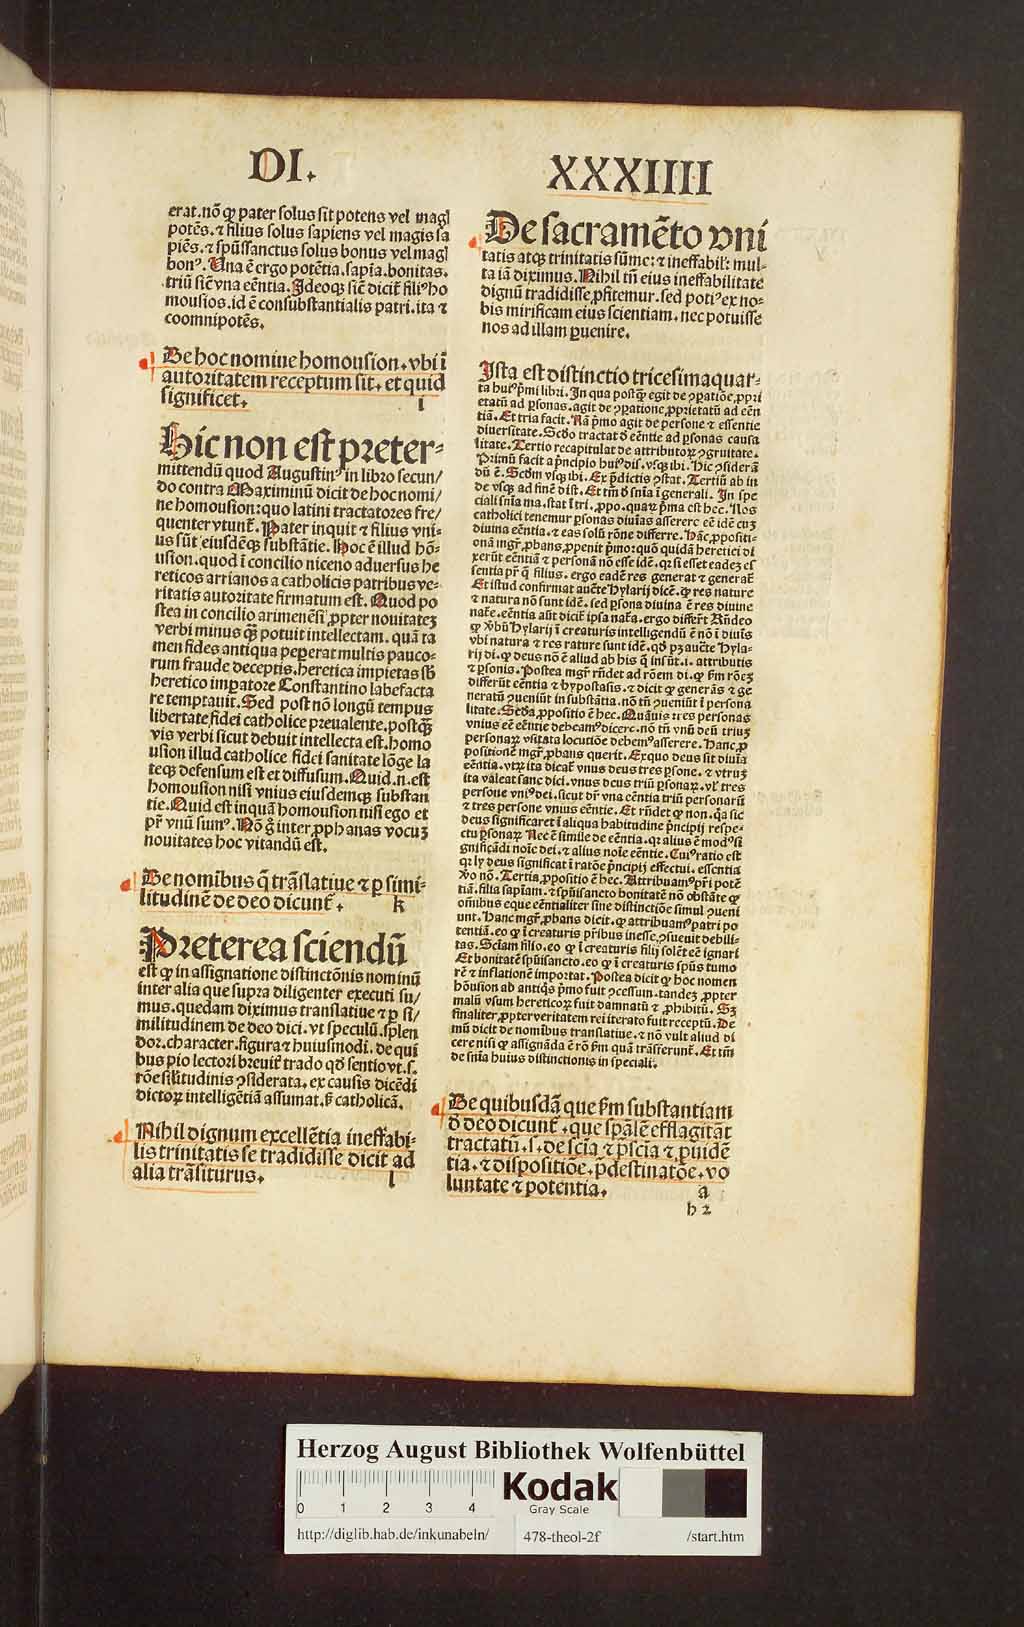 DI.
XXXIIII
erat.nō ꝙ pater solus sit potens vel magꝭ
potēs.⁊ filius solus sapiens vel magis sa
piēs.⁊ spūssanctus solus bonus vel magꝭ
bonꝰ. Una ē ergo potētia.sapīa.bonitas.
triū sic̄ vna eēntia. Ideoqꝫ sic̄ dicit̄ filiꝰ ho
mousios.id ē consubstantialis patri.ita ⁊
coomnipotēs.
De hoc nomine homousion.vbi ī
autoritatem receptum sit. et quid
significet. i
Hic non est preter⸗
mittendū quod Augustinꝰ in libro secun/
do contra Maximinū dicit de hoc nomi/
ne homousion:quo latini tractatores fre/
quenter vtunt̄. Pater inquit ⁊ filius vni⸗
us sūt eiusdēqꝫ substātie. Hoc ē illud hō⸗
usion.quod ī concilio niceno aduersus he
reticos arrianos a catholicis patribus ve⸗
ritatis autoritate firmatum est. Quod po
stea in concilio arimenēsi ꝓpter nouitateꝫ
verbi minus qꝫ̄ potuit intellectam.quā ta
men fides antiqua peperat multis pauco⸗
rum fraude deceptis.heretica impietas sb̄
heretico impatore Constantino labefacta
re temptauit. Sed post nō longū tempus
libertate fidei catholice preualente.postqꝫ̄
vis verbi sicut debuit intellecta est.homo
usion illud catholice fidei sanitate lōge la
teqꝫ defensum est et diffusum. Quid.n.est
homousion nisi vnius eiusdemqꝫ substan
tie. Quid est inquā homousion nisi ego et
pr̄ vnū sumꝰ. Nō g̊ inter ꝓphanas vocuꝫ
nouitates hoc vitandū est.
De nomībus q̄ trāslatiue ⁊ ꝑ simi⸗
litudinē de deo dicunt̄. k
Preterea sciendū
est ꝙ in assignatione distinctōnis nominū
inter alia que supra diligenter executi su/
mus.quedam diximus translatiue ⁊ ꝑ si/
militudinem de deo dici.vt speculū.splen
dor.character.figura ⁊ huiusmodi.de qui
bus pio lectori breuit̄ trado qd̄ sentio vt.s.
rōe silitudinis ꝯsiderata.ex causis dicēdi
dictoꝝ intelligētiā assumat.sꝫ catholicā.
Nihil dignum excellētia ineffabi⸗
lis trinitatis se tradidisse dicit ad
alia trāsiturus. l
De sacramēto vni
tatis atqꝫ trinitatis sūme: ⁊ ineffabil: mul⸗
ta iā diximus. Nihil tn̄ eius ineffabilitate
dignū tradidisse ꝓfitemur.sed potiꝰ ex no⸗
bis mirificam eius scientiam.nec potuisse
nos ad illam ꝑuenire.
Ista est distinctio tricesimaquar⸗
ta huiꝰ pͥmi libri. In qua postqꝫ̄ egit de ꝯꝑatiōe ꝓpri
etatū ad ꝑsonas.agit de ꝯꝑatione ꝓprietatū ad eēn
tiā. Et tria facit. Nā pͥmo agit de persone ⁊ essentie
diuersitate. Scd̄o tractat ð eēntie ad ꝑsonas causa
litate. Tertio recapitulat de attributoꝝ ꝯgruitate.
Primū facit a pͥncipio huiꝰ dis.vsqꝫ ibi. Hic ꝯsiderā
dū ē. Scd̄m vsqꝫ ibi. Ex p̄dictis ꝯstat. Tertiū ab in
de vsqꝫ ad finē dist. Et tm̄ ð sn̄ia ī generali. In spe
ciali sn̄ia mr̄.stat ī tri.ꝓpo.quaꝝ pͥma est hec. Nos
catholici tenemur ꝑsonas diuīas asserere eē idē cuꝫ
diuina eēntia.⁊ eas solū rōne differre. Hāc ꝓpositi⸗
onā mgr̄ ꝓbans ꝓpenit pͥmo:quō quidā heretici di
xerūt eēntiā ⁊ personā nō esse idē.qꝛ si esset eadeꝫ es
sentia pr̄ q̄ filius.ergo eadē res generat ⁊ generat̄
Et istud confirmat aucte Hylarij dicē.ꝙ res nature
⁊ natura nō sunt idē.sed ꝑsona diuina ē res diuine
nat̄e.eēntia aūt dicit̄ ipsa nat̄a.ergo differt̄ Rn̄deo
ꝙ v̄bū Hylarij ī creaturis intelligendū ē nō ī diuīs
vbi natura ⁊ res nature sunt idē.qd̄ pꝫ aucte Hyla⸗
rij di.ꝙ deus nō ē aliud ab his q̄ insūt.i.attributis
⁊ ꝑsonis. Postea mgr̄ rn̄det ad rōem di.ꝙ sm̄ rōeꝫ
differūt eēntia ⁊ hypostasis.⁊ dicit ꝙ generās ⁊ ge
neratū ꝯueniūt in substātia.nō tn̄ ꝯueniūt ī persona
litate. Scd̄a ꝓpositio ē hec. Quāuis tres personas
vnius eē eēntie debeamꝰ dicere.nō tn̄ vnū deū triuꝫ
personaꝝ vsitata locutiōe debemꝰ asserere. Hanc ꝓ
positionē mgr̄ ꝓbans querit. Ex quo deus sit diuīa
eēntia.vtꝝ ita dicat̄ vnus deus tres ꝑsone.⁊ vtruꝫ
ita valeat sane dici.vnus deus triū ꝑsonaꝝ.vl' tres
persone vniꝰ dei.sicut dr̄ vna eēntia triū personarū
⁊ tres persone vnius eēntie. Et rn̄det ꝙ non.q̄a sic
deus significaret ī aliqua habitudine pͥncipij respe⸗
ctu ꝑsonaꝝ Nec ē simile de eēntia.qꝛ alius ē modꝰ si
gnificādi noīe dei.⁊ alius noīe eēntie. Cuiꝰ ratio est
qꝛ ly deus significat ī ratōe pͥncipij effectui.essentia
v̄o nō. Tertia ꝓpositio ē hec. Attribuamꝰ pr̄i potē
tiā.filia sapīam.⁊ spūisancto bonitatē nō obstāte ꝙ
oībus eque eēntialiter sine distinctiōe simul ꝯueni
unt. Hanc mgr̄ ꝓbans dicit.ꝙ attribuamꝰ patri po
tentiā.eo ꝙ ī creaturis pr̄ibus inesse ꝯsueuit debili⸗
tas. Sciam filio.eo ꝙ ī creaturis filij solēt eē ignari
Et bonitatē spūisancto.eo ꝙ ī creaturis spūs tumo
rē ⁊ inflationē importat. Postea dicit ꝙ hoc nomen
hōusion ab antiqͥs pͥmo fuit ꝯcessum.tandeꝫ ꝓpter
malū vsum hereticoꝝ fuit damnatū ⁊ ꝓhibitū. Sꝫ
finaliter ꝓpter veritatem rei iterato fuit receptū. De
mū dicit de nomībus translatiue.⁊ nō vult aliud di
cere nisi ꝙ assignāda ē rō sm̄ quā trāsferunt̄. Et tm̄
de sn̄ia huius distinctionis in speciali.
De quibusdā que sm̄ substantiam
ð deo dicunt̄.que spālē efflagitāt
tractatū.s.de scīa ⁊ p̄scīa ⁊ ꝓuidē
tia.⁊ dispositiōe.p̄destinatōe.vo
luntate ⁊ potentia. a
h 2
Herzog August Bibliothek Wolfenbüttel
0 1 2 3 4
Kodak
Gray Scale
http://diglib.hab.de/inkunabeln/ 478-theol-2f /start.htm